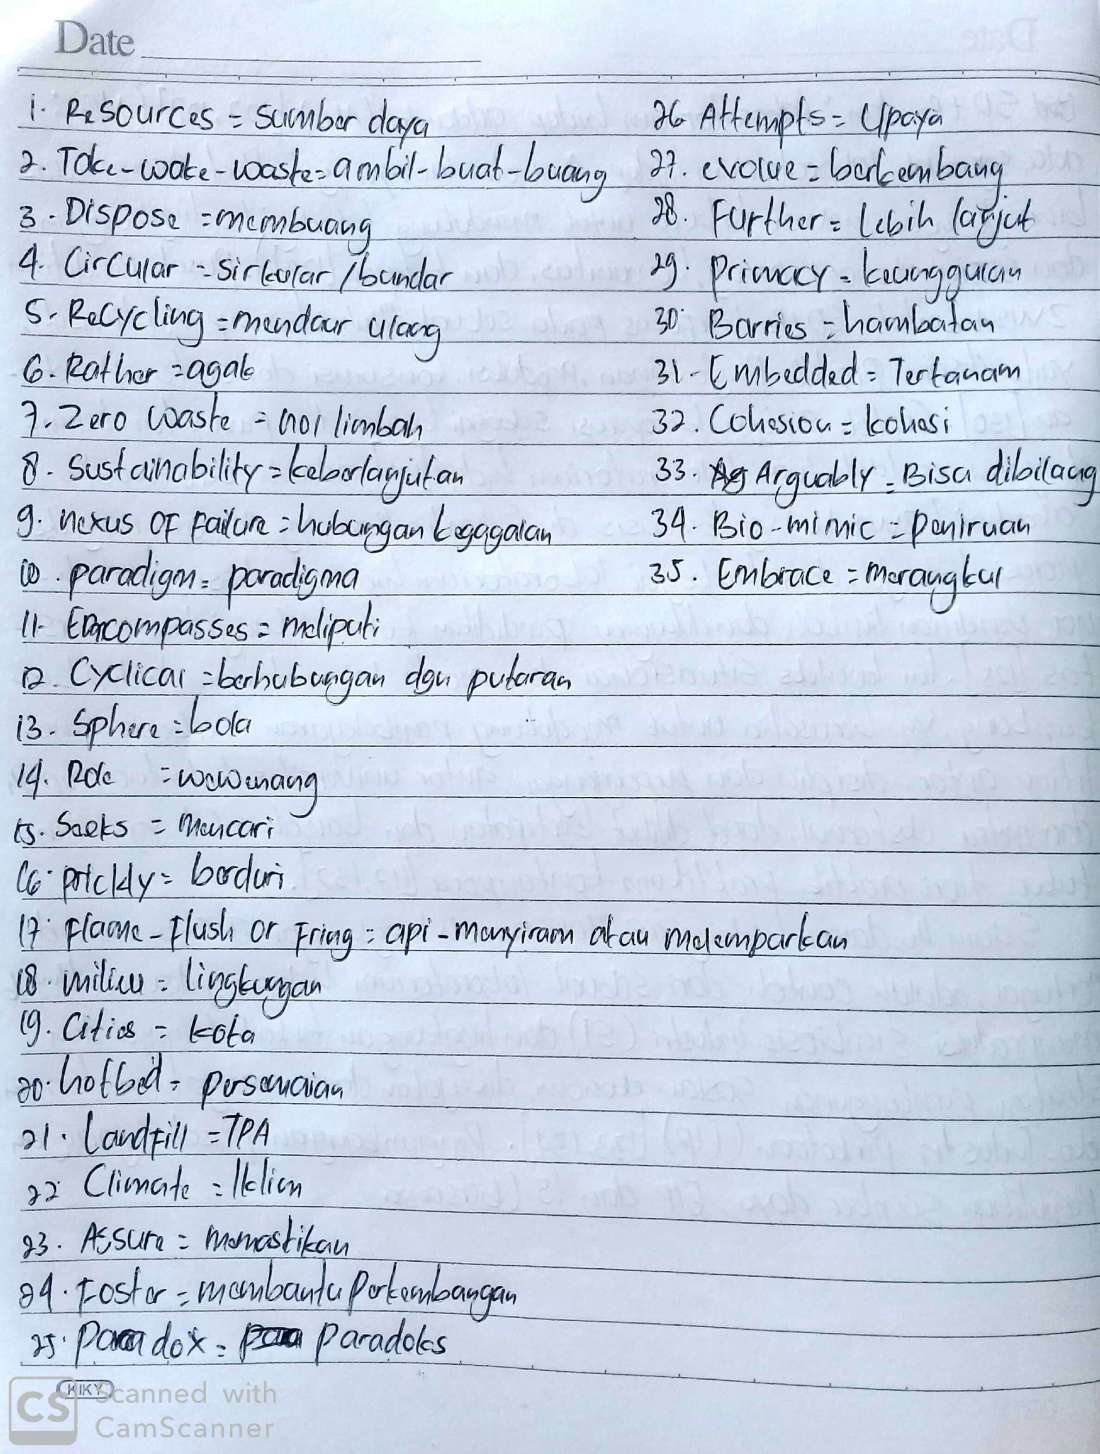 Date
1. Resources = Sumber daya
2. Take-wake-waste = ambil-buat-buang
3. Dispose = membuang
4. Circular = Sirkular / bundar
5. Recycling = mendaur ulang
6. Rather = agak
7. Zero waste = nol limbah
8. Sustainability = keberlanjutan
9. nexus of failure = hubungan kegagalan
10. paradigm = paradigma
11. Encompasses = meliputi
12. Cyclical = berhubungan dgn putaran
13. Sphere = bola
14. Role = wewenang
15. Seeks = Mencari
16. prickly = berduri
17. Flame - Flush or Fring = api - menyiram atau melemparkan
18. milieu = lingkungan
19. Cities = kota
20. hotbed = persemaian
21. Landfill = TPA
22. Climate = Iklim
23. Assure = memastikan
24. Foster = membantu Perkembangan
25. Paradox = Paradoks
26. Attempts = Upaya
27. evolve = berkembang
28. Further = Lebih lanjut
29. Primacy = keunggulan
30. Barries = hambatan
31. Embedded = Tertanam
32. Cohesion = kohesi
33. Arguably = Bisa dibilang
34. Bio-mimic = peniruan
35. Embrace = merangkul
KIKY
CS Scanned with
CamScanner